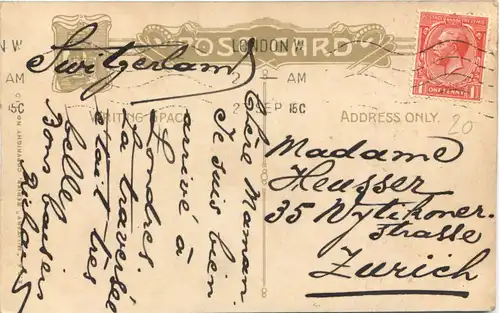 POST CARD
LONDON.W.
AM
15C
LONDON W.
AM
2 SEP 15C
WRITING SPACE
ADDRESS ONLY.
ONE PENNY
20
Switzerland
Chère Maman
Je suis bien
arrivé à
Londres.
La traversée
était très
belle
Bons baisers
Madame
Heusser
35 Wytikoner-
strasse
Zurich